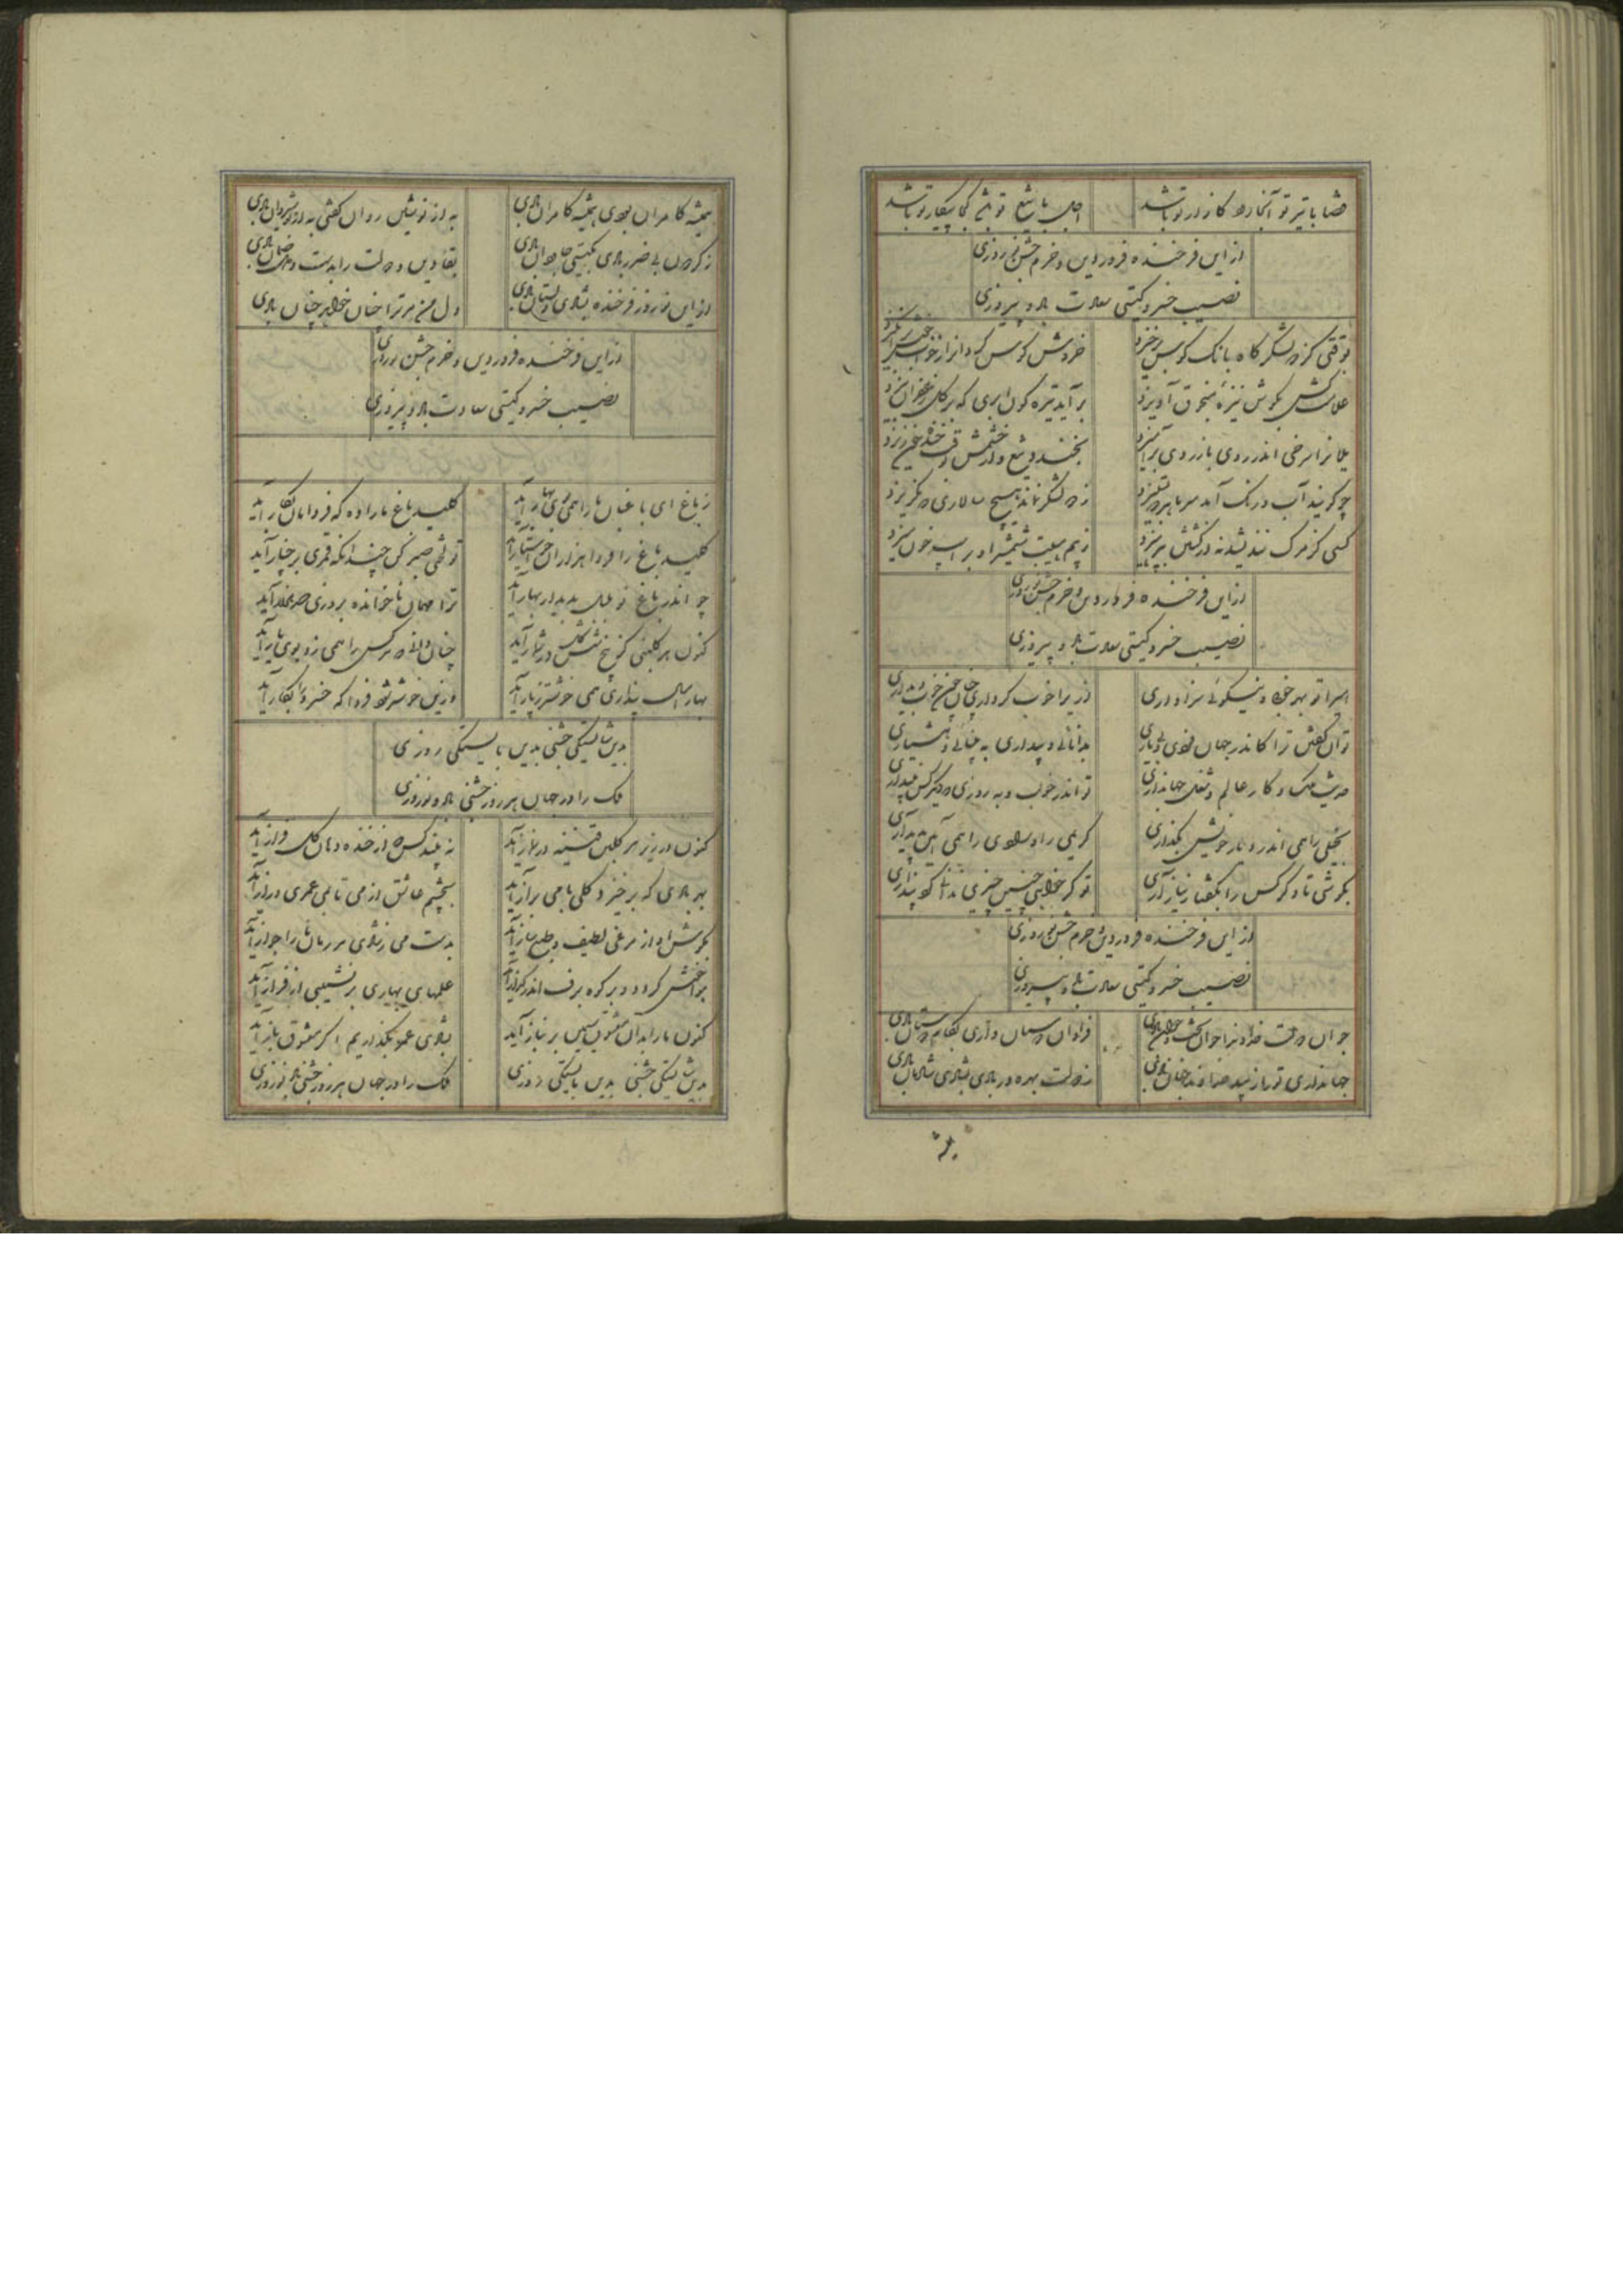 قضا با تیر تو آنجا رود کانرا تو باشد اجل با تیغ تو باشد کجا پیکار تو باشد
ازین فرخنده فروردین و خرم جشن نوروزی
نصیب خسرو گیتی سعادت باد و پیروزی
بوقتی کز دو لشکرگاه بانگ کوس برخیزد خروش کوس گردانرا ز خواب خوش برانگیزد
علامت کش بگوش نیزه منجوق آویزد برآید تیره گون ابری که بر گل زعفران بیزد
یلانرا سرخی اندر روی با زردی برآمیزد بخندد تیغ و از چشمش بوقت خنده خون ریزد
چو گویند آب و رنگ آمد سر ما بر که بستیزد ز دو لشکر نماند هیچ سالاری که نگریزد
کسی کز مرگ نندیشد نه در کشتن بپرهیزد ز بیم هیبت شمشیر او بر اسب خون میزد
ازین فرخنده فروردین و خرم جشن نوروزی
نصیب خسرو گیتی سعادت باد و پیروزی
امیرا تو بهر خوبی و نیکوئی سزاواری ازیرا خوب کرداری چنان چون خوب دیداری
توان گفتن ترا کاندر جهان فردی و بی یاری بدانائی و بیداری به بینائی و هشیاری
حدیث ملک و کار عالم و شغل جهانداری تو اندر خوب و به روزی که دیگر کس نپنداری
بخیلی را همی اندر دیار خویش نگذاری کریمی را و رادی را همی آئین پدید آری
بکوشی تا دگر کس را بگفتار نیاز آری تو گر خواهی چنین چیزی ندانی گو نپنداری
ازین فرخنده فروردین و خرم جشن نوروزی
نصیب خسرو گیتی سعادت باد و پیروزی
جوان دولت خداوندا جوان بخت و جوان بادی فراوان دوستان داری بکام دوستان بادی
جهانداری تو از بیداد خداوند جهان بادی ز دولت بهره ور بادی بشادی شادمان بادی
همیشه
همیشه کامران بودی همیشه کامران بادی به از نوشین روان گشتی به از نوشیروان بادی
ز گردون بی ضرر بادی بگیتی جاودان بادی بقا و دین و دولت را بدست و دل ضمان بادی
ازین نوروز فرخنده بشادی دلستان بادی دل من مر ترا چنان خواهد چنان بادی
ازین فرخنده فروردین و خرم جشن نوروزی
نصیب خسرو گیتی سعادت باد و پیروزی
ز باغ ای باغبان ما را همی بوی بهار آید کلید باغ ما را ده که فردامان بکار آید
کلید باغ را فردا هزاران خواستار آید تو لختی صبر کن چندانکه قمری بر چنار آید
چو اندر باغ تو بلبل بدیدار بهار آید ترا مهمان ناخوانده بروزی صد هزار آید
کنون هر گلبنی کو پنج شش گل در شمار آید چنان دانی که هر کس را همی زو بوی یار آید
بهار امسال پنداری همی خوشتر ز پار آید وزین خوشتر شود فردا که خسرو از شکار آید
بدین شایستگی جشنی بدین بایستگی روزی
ملک را در جهان هر روز جشنی باد و نوروزی
کنون در زیر هر گلبن قنینه در نماز آید نه بیند کس که از خنده دهان گل فراز آید
بهر بادی که برخیزد گلی با می براز آید بچشم عاشق از می تا بمی عمری دراز آید
بگوش آواز هر مرغی لطیف و طبع ساز آید بدست می ز شادی هر زمان ما را جواز آید
هوا خوش گردد و بر کوه برف اندر گداز آید علمهای بهاری بر نشیبی از فراز آید
کنون ما را بدان معشوق سیمین بر نیاز آید بشادی عمر بگذاریم اگر معشوق باز آید
بدین شایستگی جشنی بدین بایستگی روزی ملک را در جهان هر روز جشنی باد و نوروزی